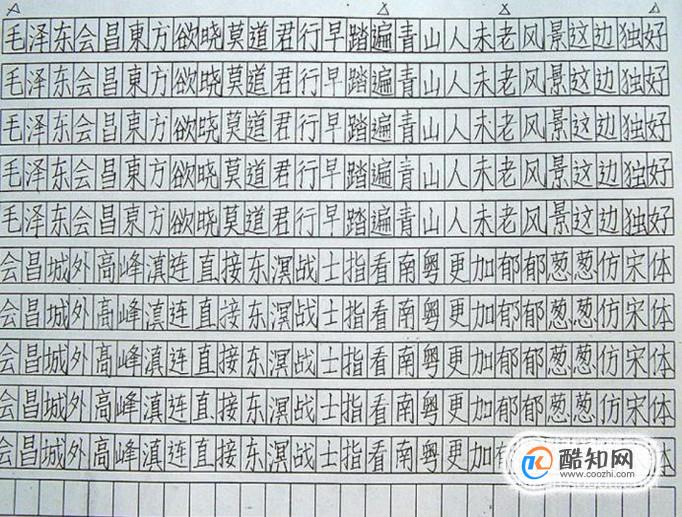 毛泽东会昌東方欲晓莫道君行早踏遍青山人未老风景这边独好
毛泽东会昌東方欲晓莫道君行早踏遍青山人未老风景这边独好
毛泽东会昌東方欲晓莫道君行早踏遍青山人未老风景这边独好
毛泽东会昌東方欲晓莫道君行早踏遍青山人未老风景这边独好
毛泽东会昌東方欲晓莫道君行早踏遍青山人未老风景这边独好
会昌城外高峰滇连直接东溟战士指看南粤更加郁郁葱葱仿宋体
会昌城外高峰滇连直接东溟战士指看南粤更加郁郁葱葱仿宋体
会昌城外高峰滇连直接东溟战士指看南粤更加郁郁葱葱仿宋体
会昌城外高峰滇连直接东溟战士指看南粤更加郁郁葱葱仿宋体
会昌城外高峰滇连直接东溟战士指看南粤更加体
酷知网
www.coozhi.com